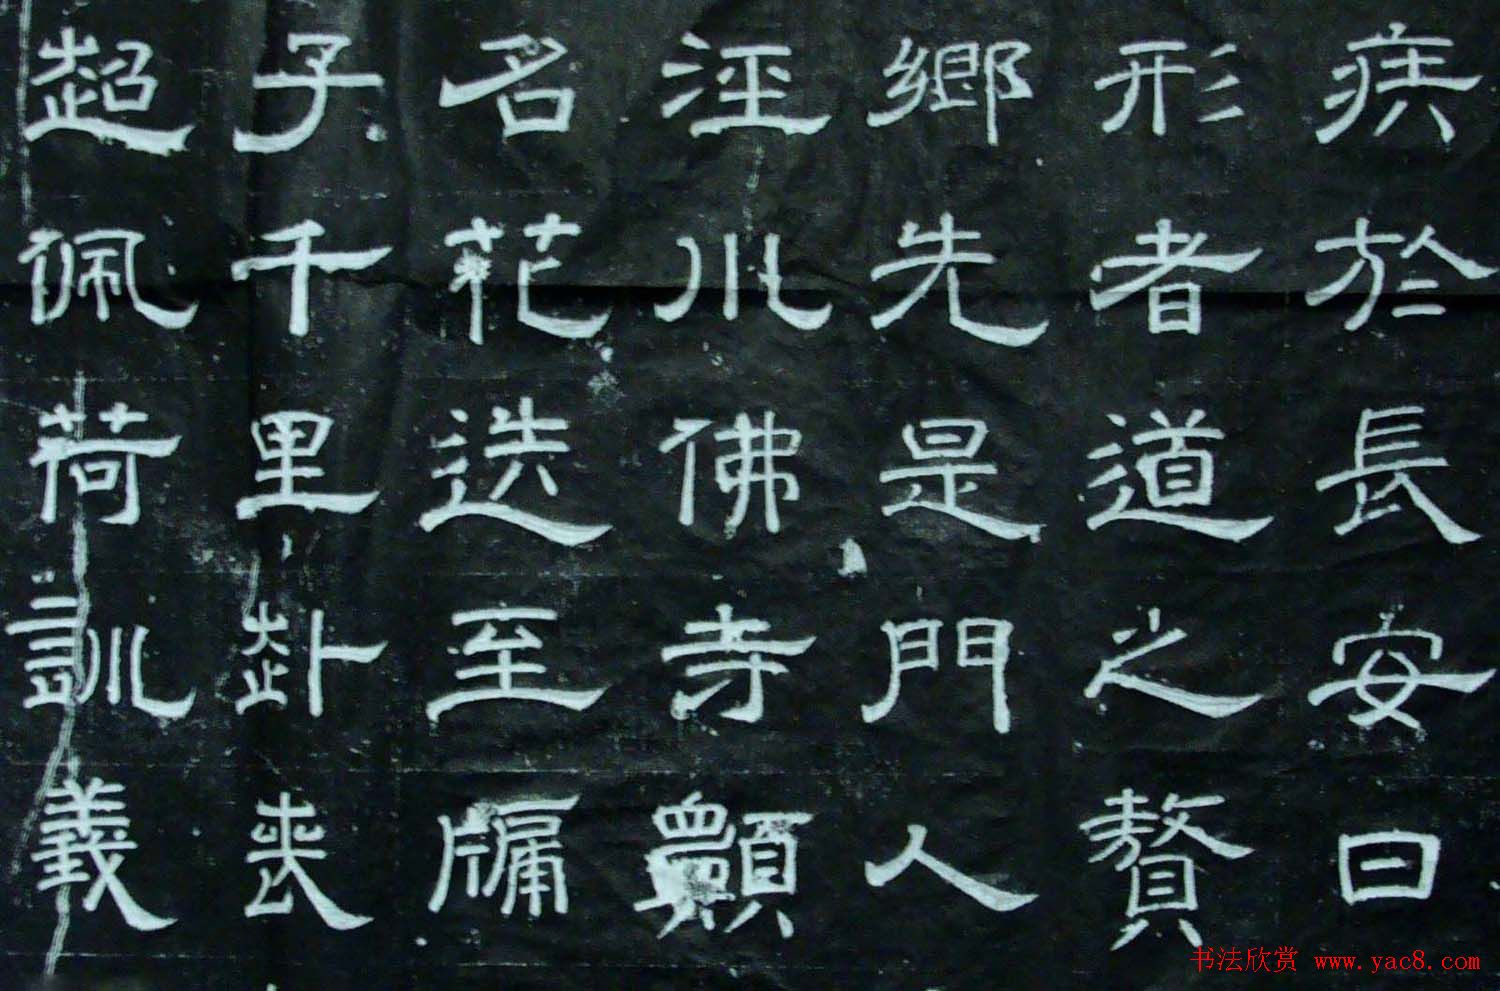 疾於長安曰
形者道之贅
鄉先是門人
涇川佛寺
名花至牖
子千里赴喪
超佩荷訓義
书法欣赏 www.yac8.com